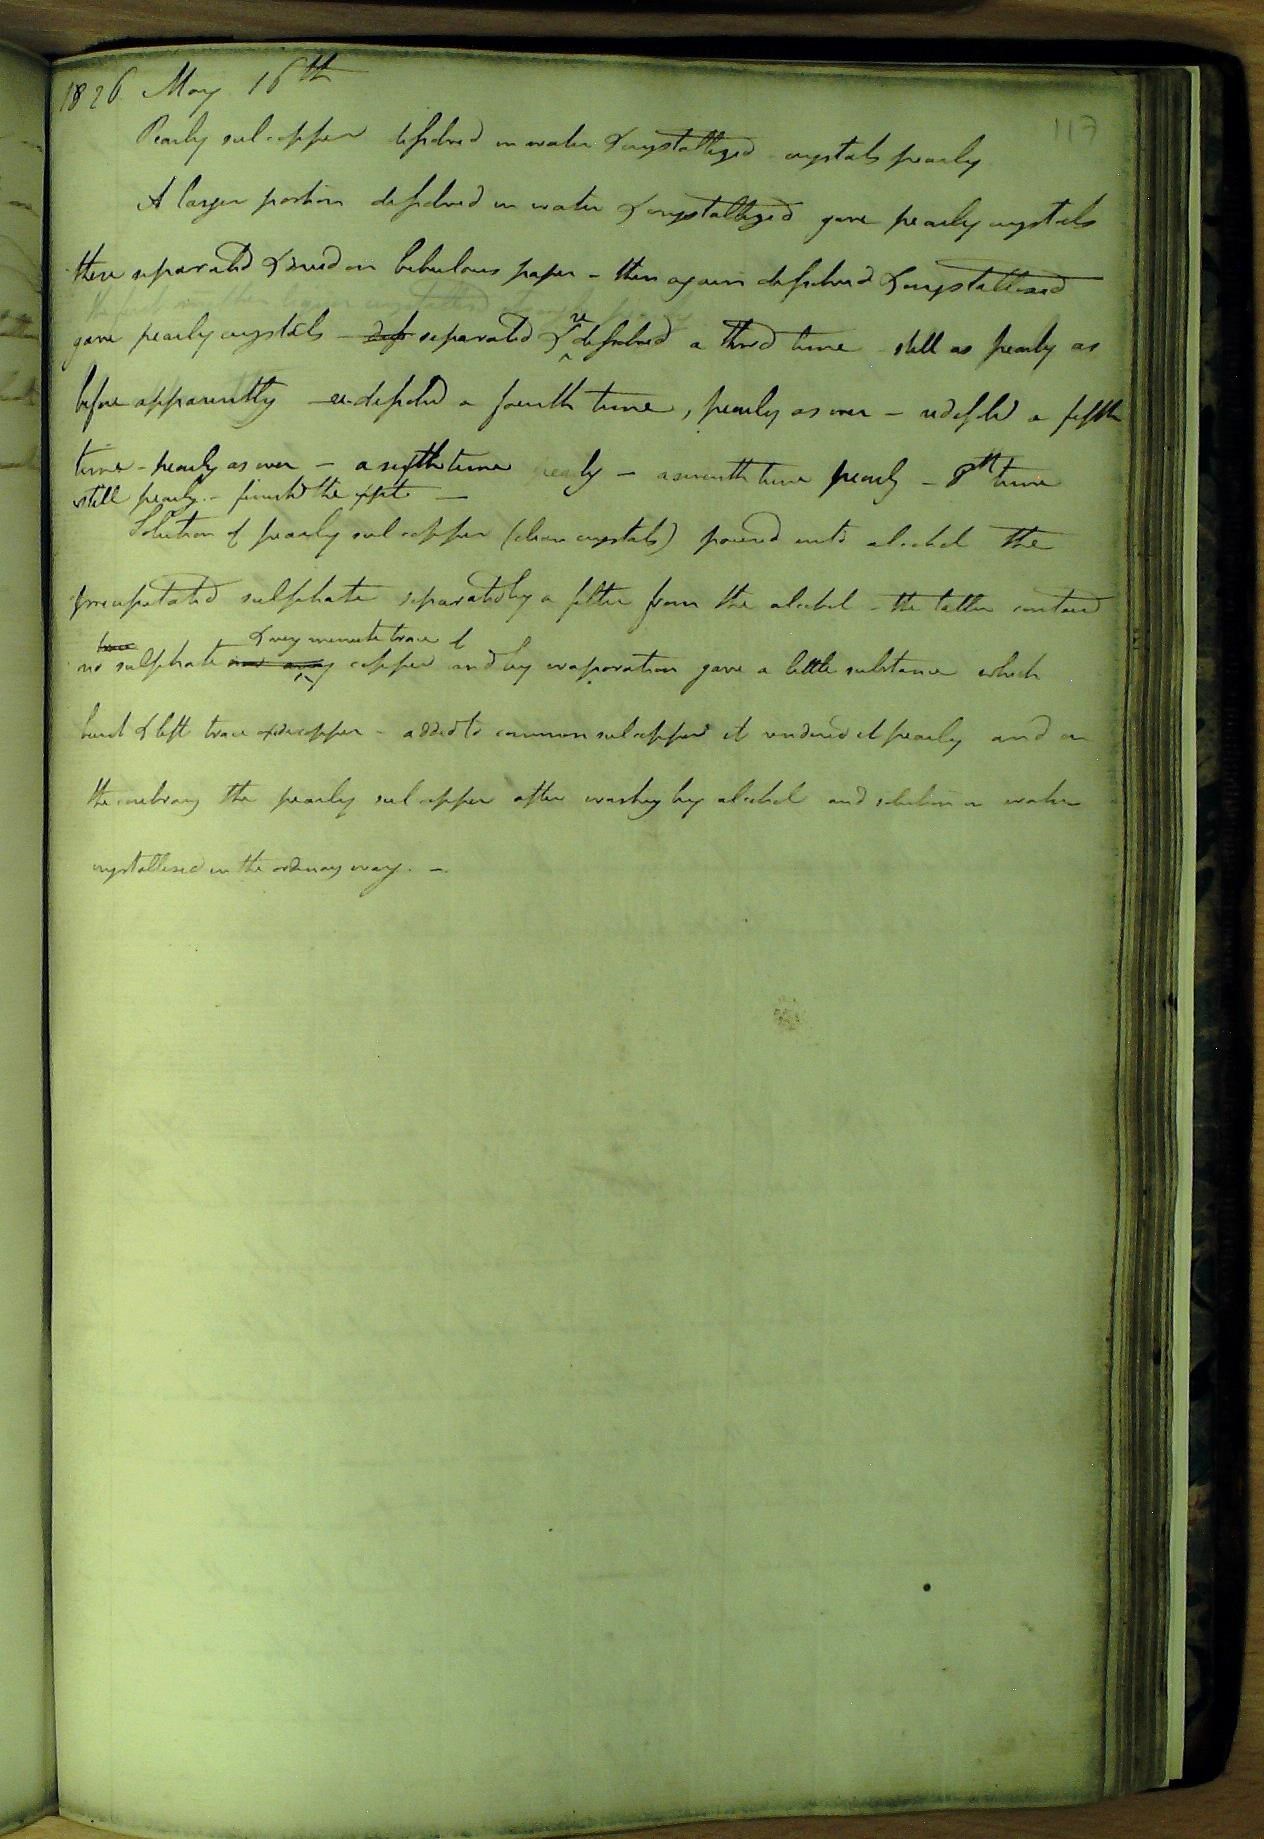 1826 May 16th
117
Pearly sul. copper dissolved in water & crystallized crystals pearly
A larger portion dissolved in water & crystallized gave pearly crystals
these separated & dried on bibulous paper - then again dissolved & crystallized
gave pearly crystals - diss separated & re dissolved a third time still as pearly as
before apparently - re-dissolved a fourth time, pearly as ever - redissolved a fifth
time - pearly as ever - a sixth time pearly - a seventh time pearly - 8th time
still pearly - finished the expt -
Solution of pearly sul copper (clean crystals) poured into alcohol the
precipitated sulphate separated by a filter from the alcohol - the latter contained
trace & very minute trace of
no sulphate nor any copper and by evaporation gave a little substance which
burnt & left trace oxide copper - added to common sul copper it rendered it pearly and on
the contrary the pearly sul copper after washing by alcohol and solution in water
crystallised in the ordinary way. -